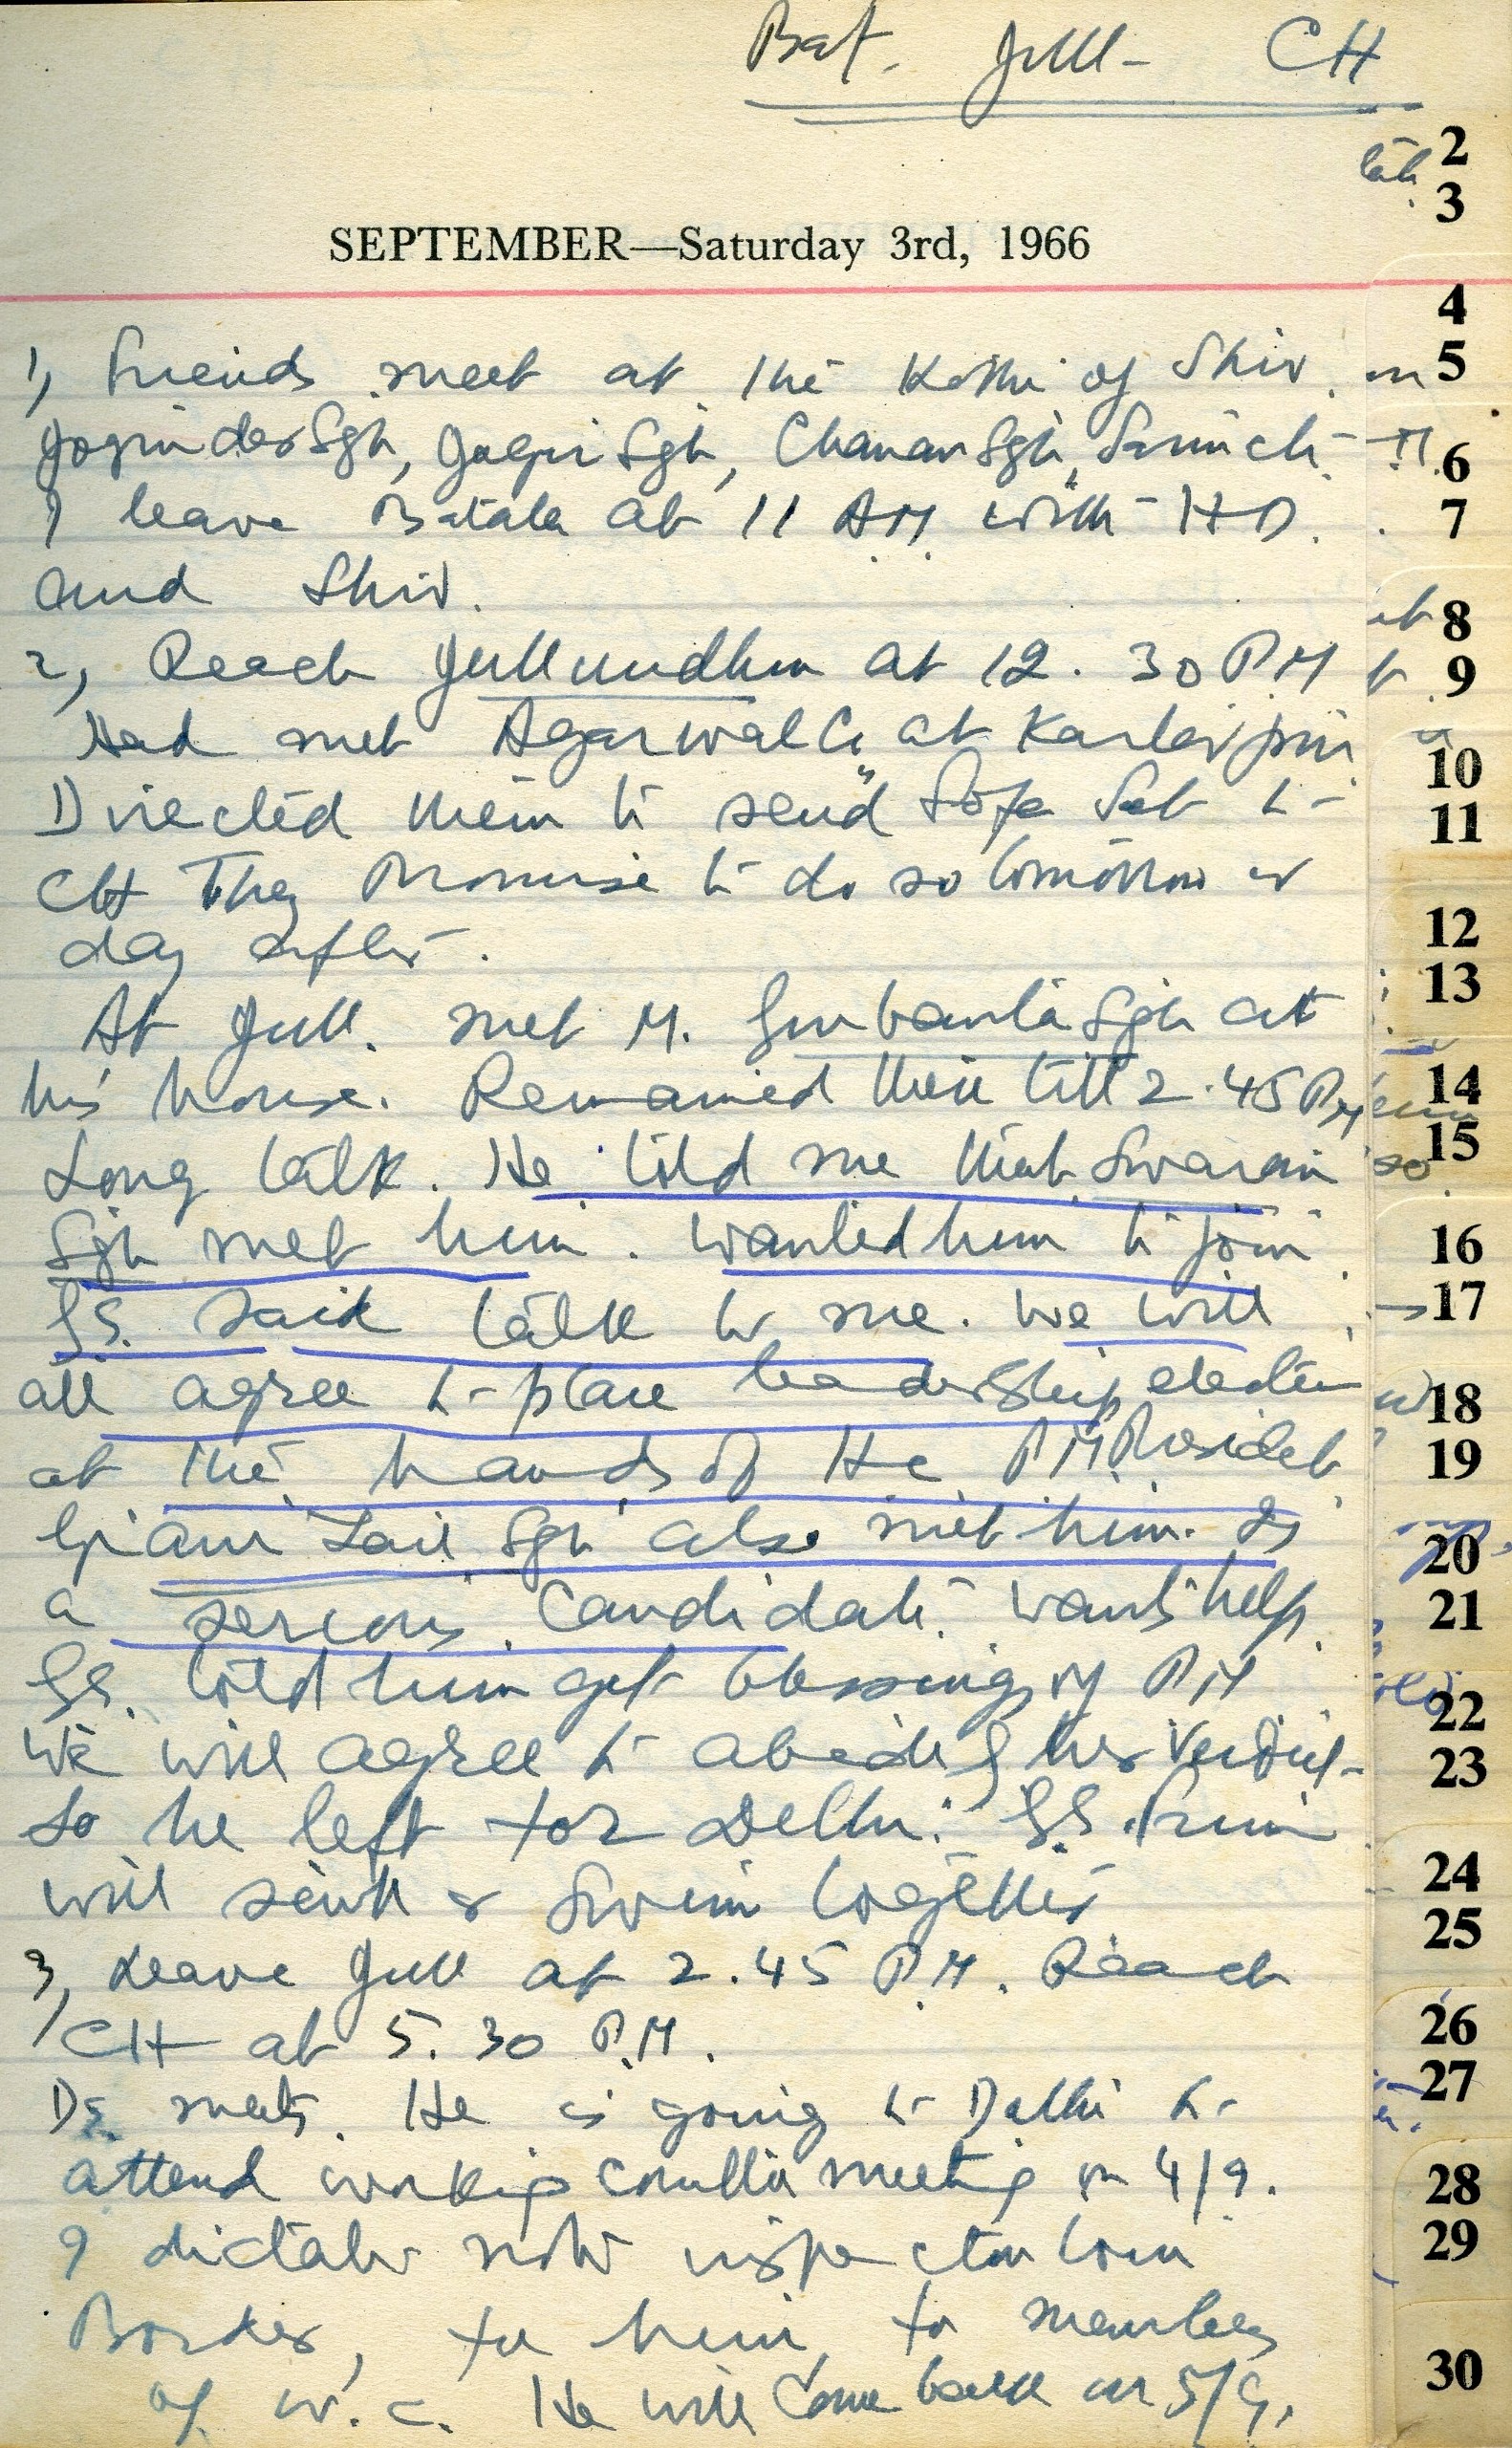 Bat. Jull- CH
SEPTEMBER—Saturday 3rd, 1966
1, Friends meet at the Kothi of Shiv.
Joginder Sgh, Jagir Sgh, Chanan Sgh,
I leave Batala at 11 AM with HD.
and Shiv.
2, Reach Jullundhur at 12.30 PM
Had met Agarwal at Kartarpur
Directed them to send Sofa Set to
CH They Promise to do so tomorrow or
day after.
At Jull. met M. Gurbanta Sgh at
his house. Remained there till 2.45 PM
Long talk. He told me that Swaran
Sgh met him. Wanted him to join
GS. said talk to me. We will
all agree to place leadership election
at the hands of the PM President
Giani Zail Sgh also met him. Is
a serious candidate. Wants help.
GS. told him get blessings of PM
We will agree to abide by her verdict-
So he left for Delhi. GS.
will sink or swim together
3, Leave Jull at 2.45 P.M. Reach
CH at 5.30 P.M.
DS. meets. He is going to Delhi to
attend working meeting on 4/9.
I dictate note inspection
Border, for him, for members
of W.C. He will come back on 5/9.
2
3
4
5
6
7
8
9
10
11
12
13
14
15
16
17
18
19
20
21
22
23
24
25
26
27
28
29
30